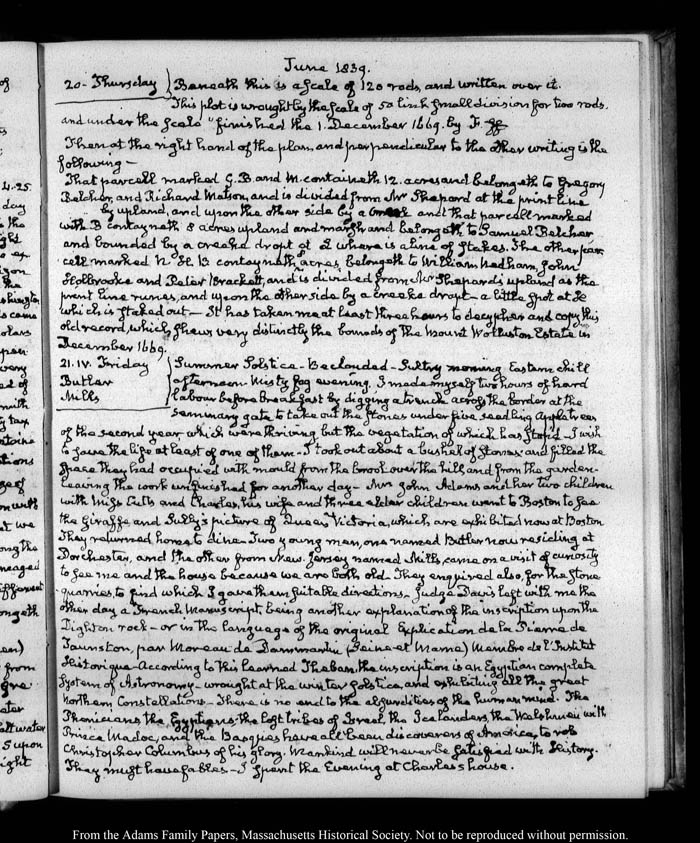 June 1839.
20 - Thursday } Beneath this is a scale of 120 rods, and written over it.
This plot is wrought by the scale of 50 link small division for two rods.
and under the Scale "finished the 1. December 1669. by J.
Then at the right hand of the plan, and perpendicular to the other writing is the
following —
That parcell marked G. B and M. containeth 12. acres and belongeth to Gregory
Belcher, and Richard Matson, and is divided from Mr Shepard at the print line
by upland, and upon the other side by a creek and that parcell marked
with B contayneth 8 acres upland and marsh and belongeth to Samuel Belcher
and bounded by a creeke dropt at L where is a line of Stakes. The other par-
cell marked N H. B contayneth acres belongeth to William Nedham, John
Holbrooke and Peter Brackett, and is divided from Mr Shepard's upland as the
prent line runes, and upon the other side by a creeke dropt — a little spot at
which is staked out — It has taken me at least three hours to decypher and copy this
old record, which shews very distinctly the bounds of the Mount Wollaston Estate in
December 1669.
21. IV. Friday } Summer Solstice - Beclouded - Sultry morning Eastern chill
Butler afternoon. Misty fog evening. I made myself two hours of hard
Mills labour before breakfast by digging a trench across the border at the
Seminary gate to take out the stones under five seedling Apple trees
of the second year, which were thriving, but the vegetation of which has stop'd - I wish
to save the life at least of one of them - I took out about a bushel of stones and filled the
space they had occupied with mould from the brook over the hill, and from the garden -
leaving the work unfinished for another day - Mrs John Adams and her two children
with Miss Cutts and Charles, his wife and three elder children went to Boston to see
the Giraffe and Sully's picture of Queen Victoria, which are exhibited now at Boston
They returned home to dine - Two young men, one named Butler now residing at
Dorchester, and the other from New Jersey named Mills, came on a visit of curiosity
to see me and the house because we are both old. They enquired also, for the stone
quarries, to find which I gave them suitable directions. Judge Davis left with me the
other day a French Manuscript, being another explanation of the inscription upon the
Dighton rock - or in the language of the original Explication de la Pierre de
Taunston, par Moreau de Dammartin (Seine et Marne) Membre de l'Institut
Historique - According to this learned Theban, the inscription is an Egyptian complete
System of Astronomy - wrought at the winter solstice, and exhibiting all the great
Northern Constellations - There is no end to the absurdities of the human mind. The
Phenicians, the Egyptians, the lost tribes of Israel, the Icelanders, the Welshmen with
Prince Madoc, and the Basques have all been discoverers of America, to rob
Christopher Columbus of his glory. Mankind will never be satisfied with History.
They must have fables - I spent the Evening at Charles's house.
4.25.
day
the
from
we
ong the
ongeth
water
5 upon
From the Adams Family Papers, Massachusetts Historical Society. Not to be reproduced without permission.